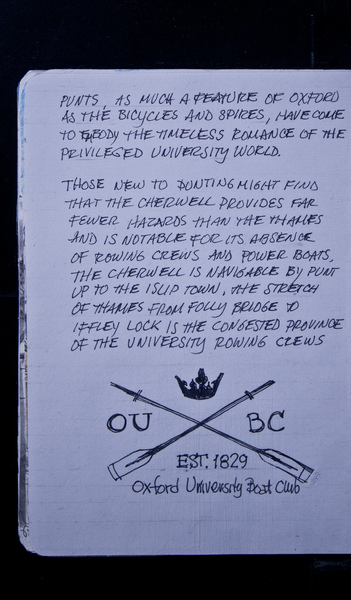 PUNTS, AS MUCH A FEATURE OF OXFORD
AS THE BICYCLES AND SPIRES, HAVE COME
TO EMBODY THE TIMELESS ROMANCE OF THE
PRIVILEGED UNIVERSITY WORLD.
THOSE NEW TO PUNTING MIGHT FIND
THAT THE CHERWELL PROVIDES FAR
FEWER HAZARDS THAN THE THAMES
AND IS NOTABLE FOR ITS ABSENCE
OF ROWING CREWS AND POWER BOATS,
THE CHERWELL IS NAVIGABLE BY PUNT
UP TO THE ISLIP TOWN, THE STRETCH
OF THAMES FROM FOLLY BRIDGE TO
IFFLEY LOCK IS THE CONGESTED PROVINCE
OF THE UNIVERSITY ROWING CREWS
OU BC
EST. 1829
Oxford University Boat Club